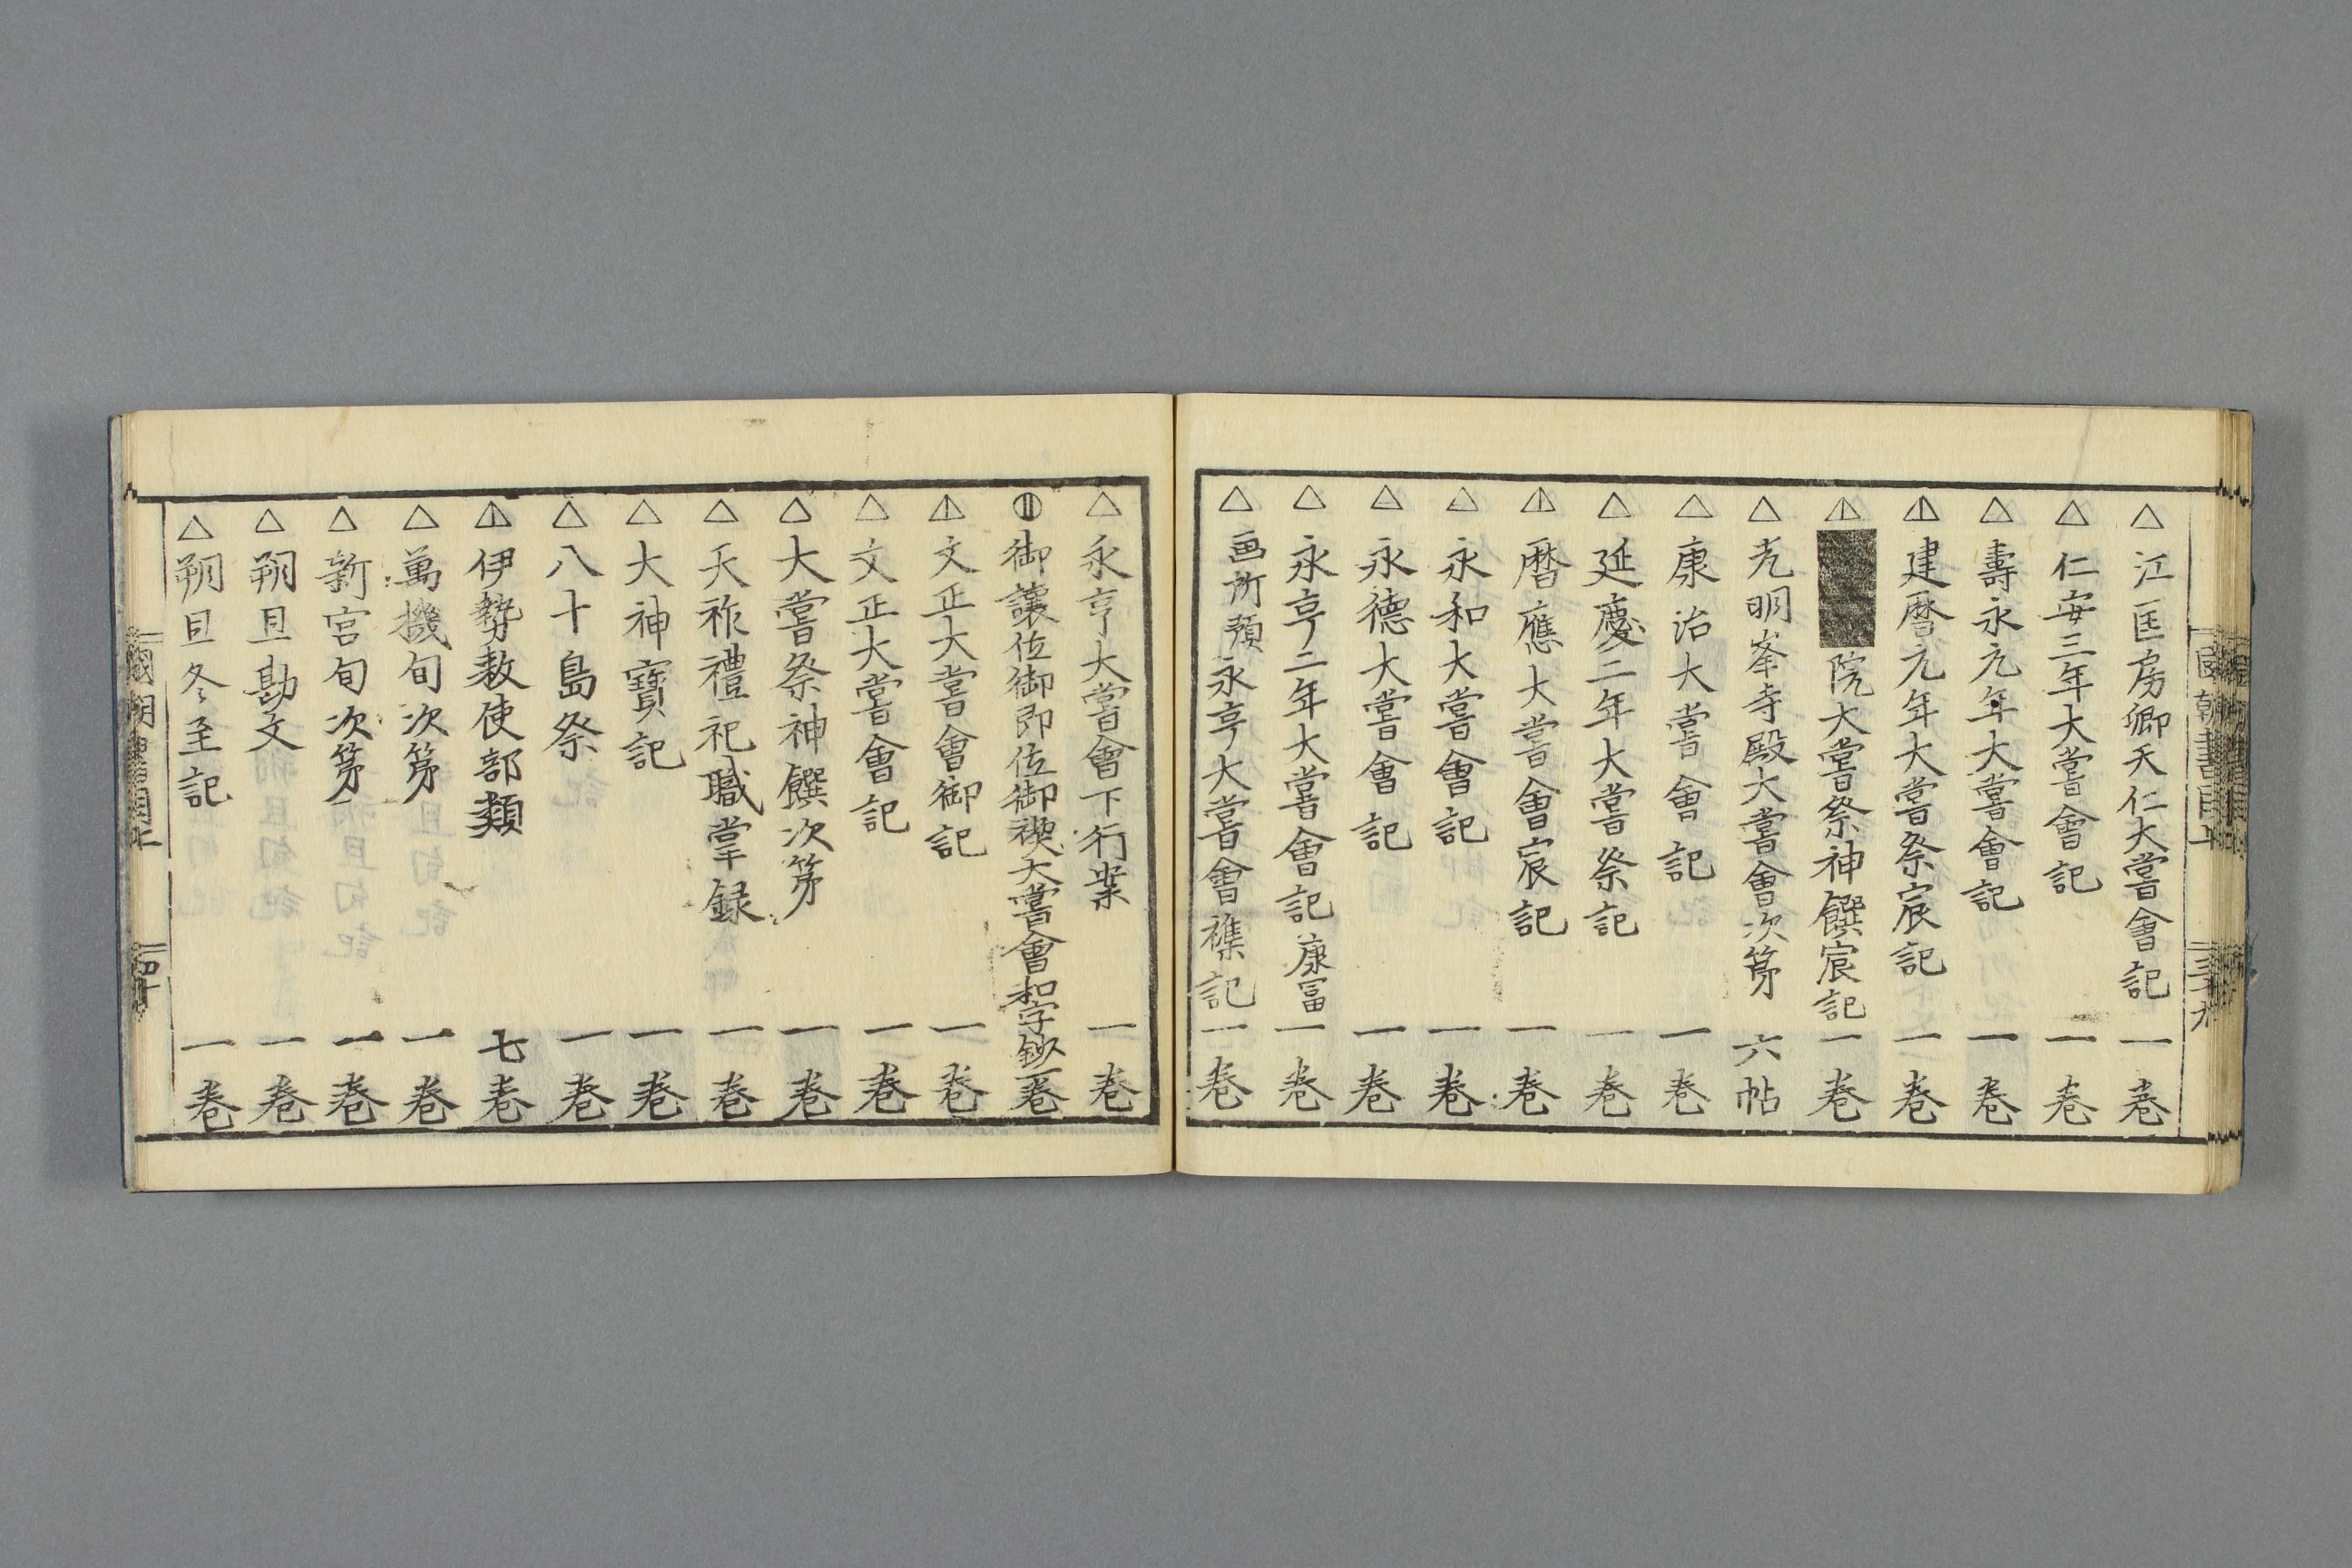 △ 江匡房卿天仁大嘗會記 一巻
△ 仁安三年大嘗會記 一巻
△ 壽永元年大嘗會記 一巻
◮ 建暦元年大嘗祭宸記 一巻
◮ 院大嘗祭神饌宸記 一巻
△ 光明峯寺殿大嘗會次第 六帖
△ 康治大嘗會記 一巻
△ 延慶二年大嘗祭記 一巻
◮ 暦應大嘗會宸記 一巻
△ 永和大嘗會記 一巻
△ 永德大嘗會記 一巻
△ 永亨二年大嘗會記 康富 一巻
△ 画所預永亨大嘗會襍記 一巻
國朝書目上
三十九
△ 永亨大嘗會下行案 一巻
◍ 御讓位御即位御禊大嘗會和字鈔 一巻
◮ 文正大嘗會御記 一巻
△ 文正大嘗會記 一巻
△ 大嘗祭神饌次第 一巻
△ 天祚禮祀職掌録 一巻
△ 大神寶記 一巻
△ 八十島祭 一巻
◮ 伊勢敕使部類 七巻
△ 萬機旬次第 一巻
△ 新宮旬次第 一巻
△ 朔旦勘文 一巻
△ 朔旦冬至記 一巻
國朝書目上
四十